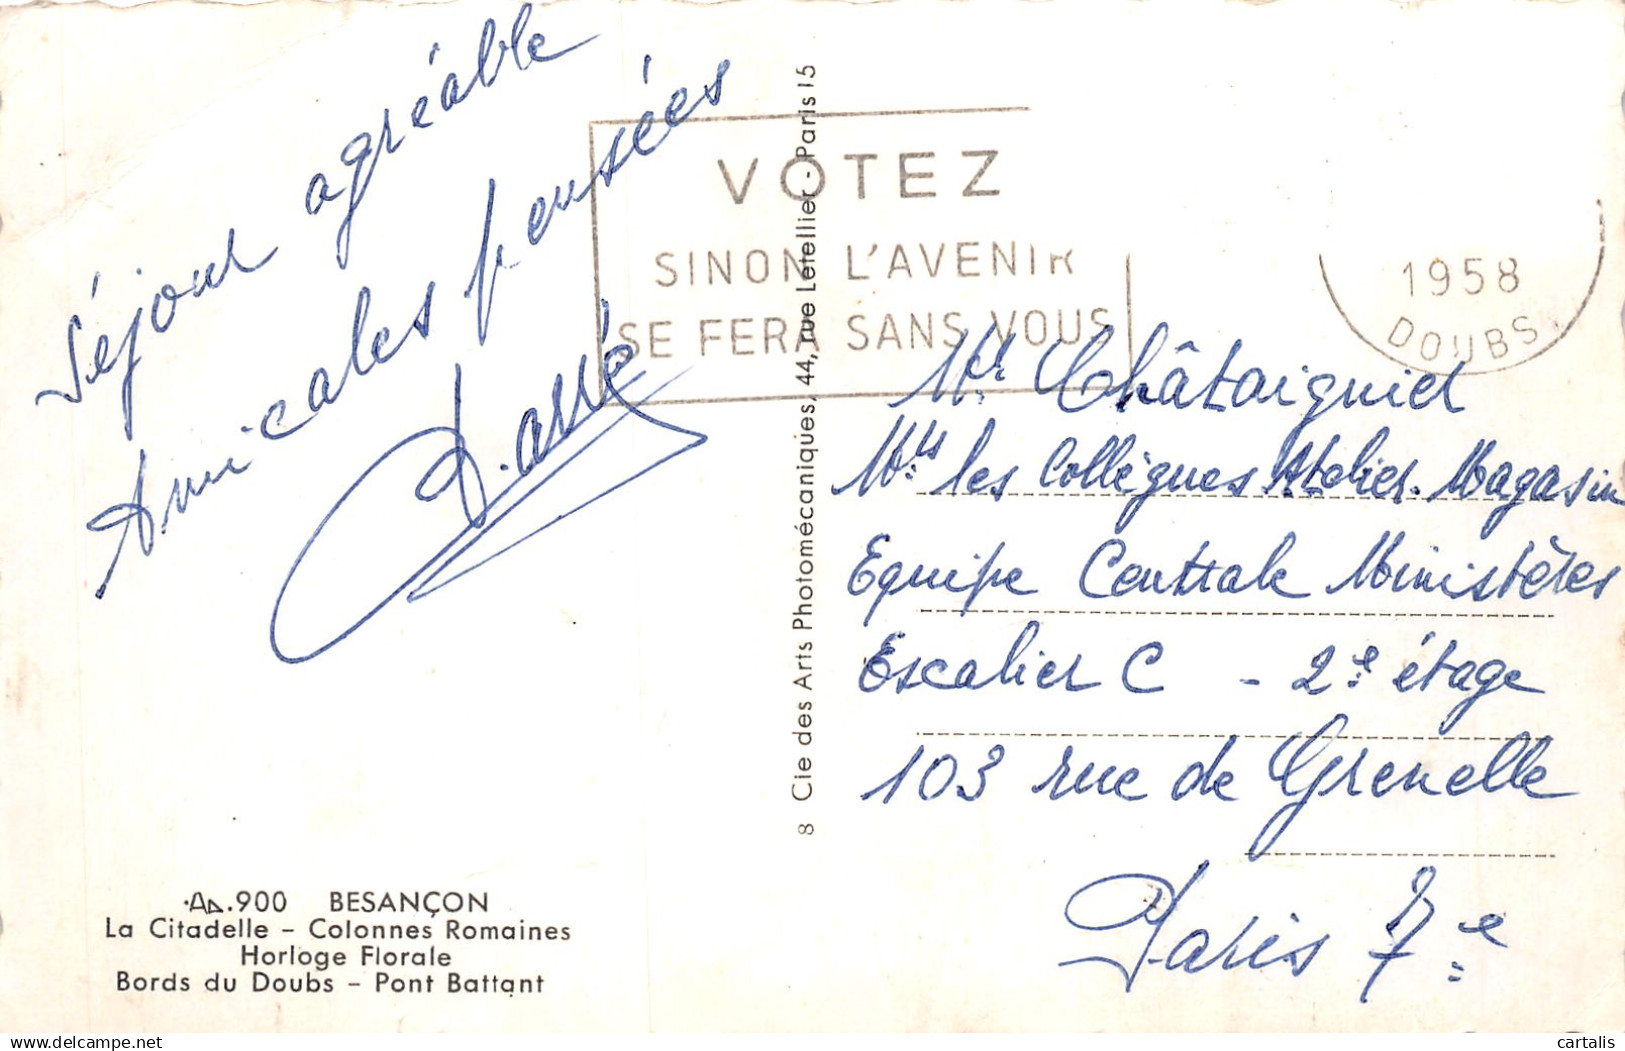 Séjour agréable
Amicales pensées
VOTEZ
SINON L'AVENIR
SE FERA SANS VOUS
1958
DOUBS
Cie des Arts Photomécaniques, 44, rue Letellier - Paris 15
8
Mr Châtaignier
Mrs les Collègues Atelier. Magasin
Equipe Centrale Ministères
Escalier C - 2e étage
103 rue de Grenelle
Paris 7e
.900 BESANÇON
La Citadelle - Colonnes Romaines
Horloge Florale
Bords du Doubs - Pont Battant
cartalis